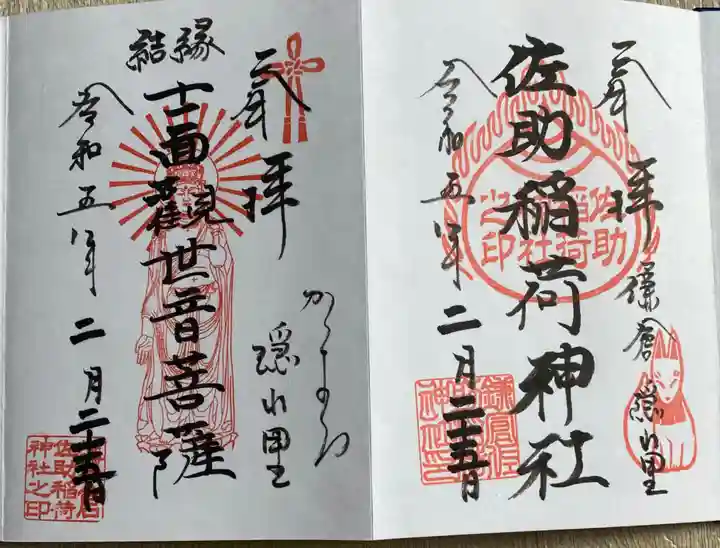 奉拝
鎌倉 隠れ里
佐助稲荷神社
令和五年 二月二十五日
佐助
稲荷
社
之印
奉拝
かまくら
隠れ里
縁結
十一面観世音菩薩
令和五年 二月二十五日
佐助稲荷
神社之印